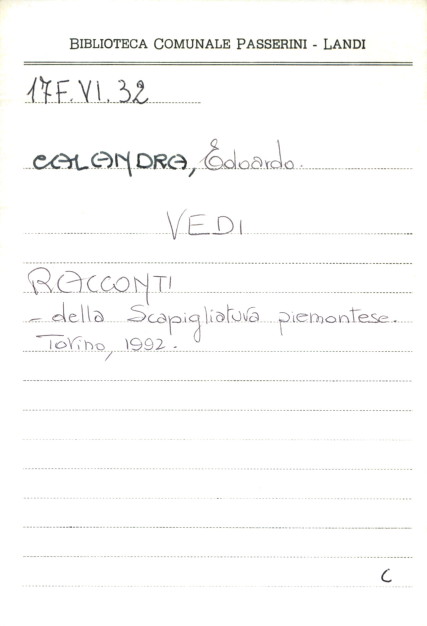 BIBLIOTECA COMUNALE PASSERINI - LANDI
17F.VI.32
CALANDRA, Edoardo.
VEDI
RACCONTI
- della Scapigliatura piemontese.
Torino, 1992.
C